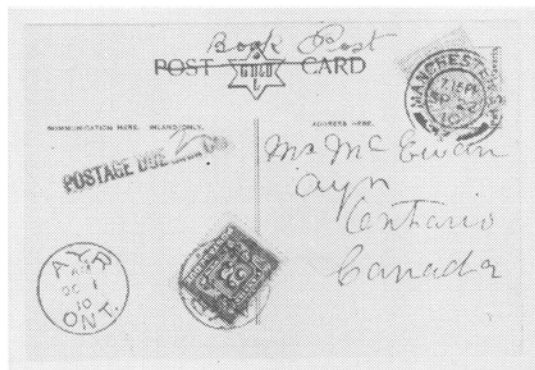 Book Post
POST CARD
MANCHESTER
7.15 PM
10
COMMUNICATION HERE. INLAND ONLY.
ADDRESS HERE.
POSTAGE DUE
Mrs McEwan
Ayr
Ontario
Canada
AYR
AM
OC 1
10
ONT.